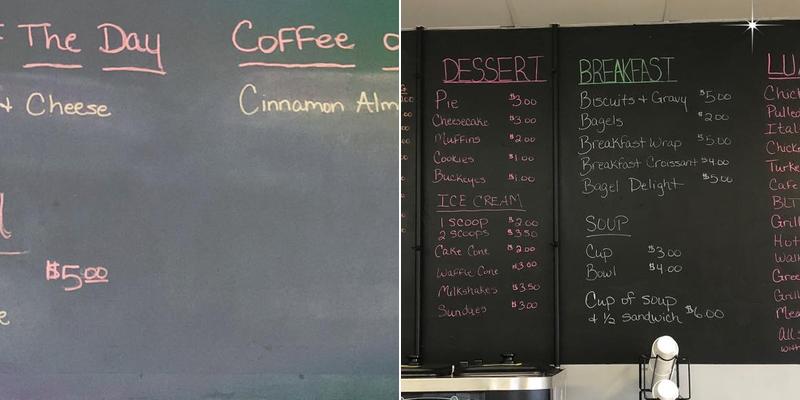 The Day
& Cheese
$5.00
Coffee
Cinnamon Alm
DESSERT
Pie $3.00
Cheesecake $3.00
Muffins $2.00
Cookies $1.00
Buckeyes $1.00
ICE CREAM
1 SCOOP $2.00
2 SCOOPS $3.50
Cake Cone $2.00
Waffle Cone $3.00
Milkshakes $3.50
Sundaes $3.00
BREAKFAST
Biscuits & Gravy $5.00
Bagels $2.00
Breakfast Wrap $5.00
Breakfast Croissant $4.00
Bagel Delight $5.00
SOUP
Cup $3.00
Bowl $4.00
Cup of soup
& 1/2 sandwich $6.00
LU
Chic
Pulled
Ital
Chick
Turke
Cafe
BLT
Grill
Hot
Walk
Gree
Grill
Mea